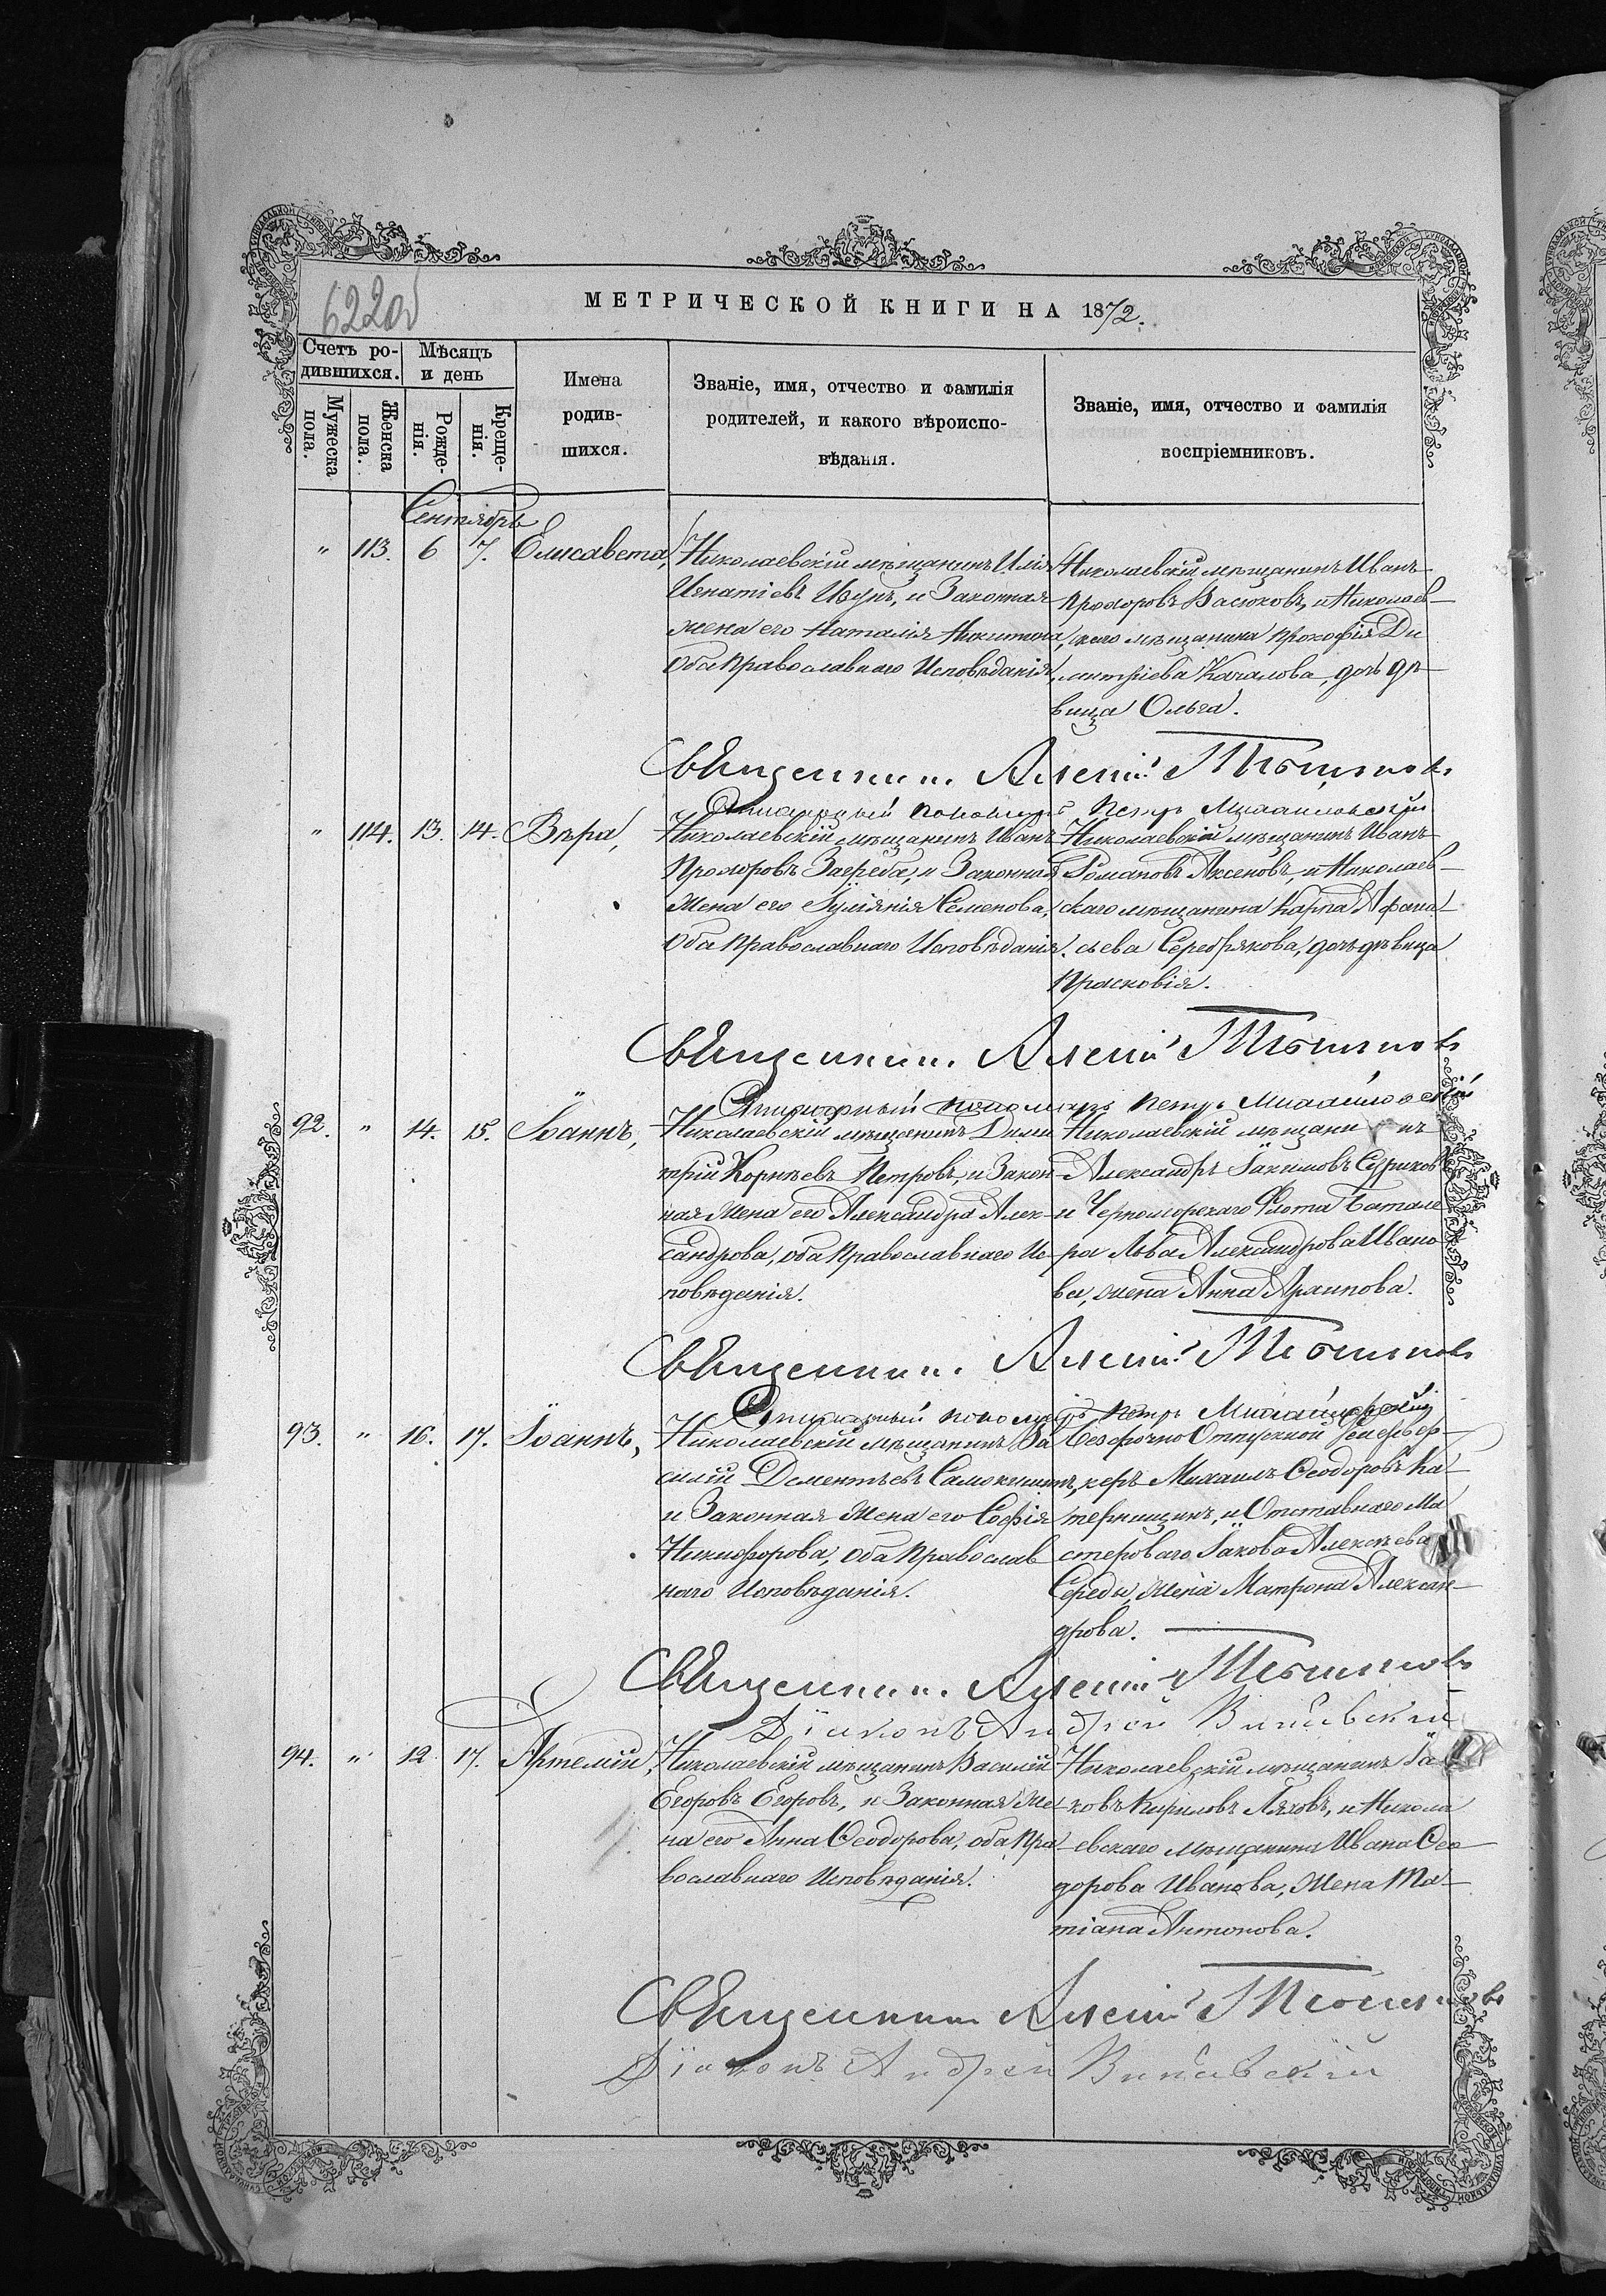 622об
МЕТРИЧЕСКОЙ КНИГИ НА 1872.
Счетъ ро-
дившихся.
Мѣсяцъ
и день
Мужеска
пола.
Женска
пола.
Рожде-
нія.
Креще-
нія.
Имена
родив-
шихся.
Званіе, имя, отчество и фамилія
родителей, и какого вѣроиспо-
вѣданія.
Званіе, имя, отчество и фамилія
воспріемниковъ.
Сентябрь
" 113. 6 7. Елисавета,
Николаевскій мѣщанинъ Илія
Игнатіевъ и Законная
жена его Наталія Никитина,
Оба Православнаго Исповѣданія.
Николаевскій мѣщанинъ Иванъ
Прохоровъ Васюковъ, и Николаев-
скаго мѣщанина Прокофія Ди
митріева Качалова, дочь дѣ-
вица Ольга.
Священникъ Алексій
Стихарный пономарь Петръ Михайловскій
" 114. 13. 14. Вѣра,
Николаевскій мѣщанинъ Иванъ
Прохоровъ Загреба, и Законная
жена его Іуліанія Семенова,
Оба Православнаго Исповѣданія.
Николаевскій мѣщанинъ Иванъ
Романовъ Аксеновъ, и Николаев-
скаго мѣщанина Карпа Афана-
сьева Серебрякова, дочь дѣвица
Прасковія.
Священникъ Алексій
Стихарный пономарь Петръ Михайловскій
92. " 14. 15. Іоаннъ,
Николаевскій мѣщанинъ Дими
трій Корнѣевъ Петровъ, и Закон-
ная жена его Александра Алек-
сандрова, оба Православнаго Ис-
повѣданія.
Николаевскій мѣщанинъ
Александръ Іакимовъ Суриковъ
и Черноморскаго Флота Батале
ра Льва Александрова Ивано-
ва, жена Анна Архипова.
Священникъ Алексій
Стихарный пономарь Петръ Михайловскій
93. " 16. 17. Іоаннъ,
Николаевскій мѣщанинъ Ва
силій Дементьевъ Самокишинъ,
и Законная жена его Софія
Никифорова, оба Православ
наго Исповѣданія.
Безсрочно Отпускной Фейервер-
керъ Михаилъ Ѳеодоровъ Ка-
тернищинъ, и Отставнаго Ма
стероваго Іакова Алексѣева
Середы, жена Матрона Алексан-
дрова.
Священникъ Алексій
Діаконъ Андрей
94. " 12 17. Артемій,
Николаевскій мѣщанинъ Василій
Егоровъ Егоровъ, и Законная же-
на его Анна Ѳеодорова, оба Пра
вославнаго Исповѣданія.
Николаевскій мѣщанинъ Іа-
ковъ Кириловъ Ляховъ, и Никола
евскаго мѣщанина Ивана Ѳео
дорова Иванова, жена Та-
тіана Антонова.
Священникъ Алексій
Діаконъ Андрей